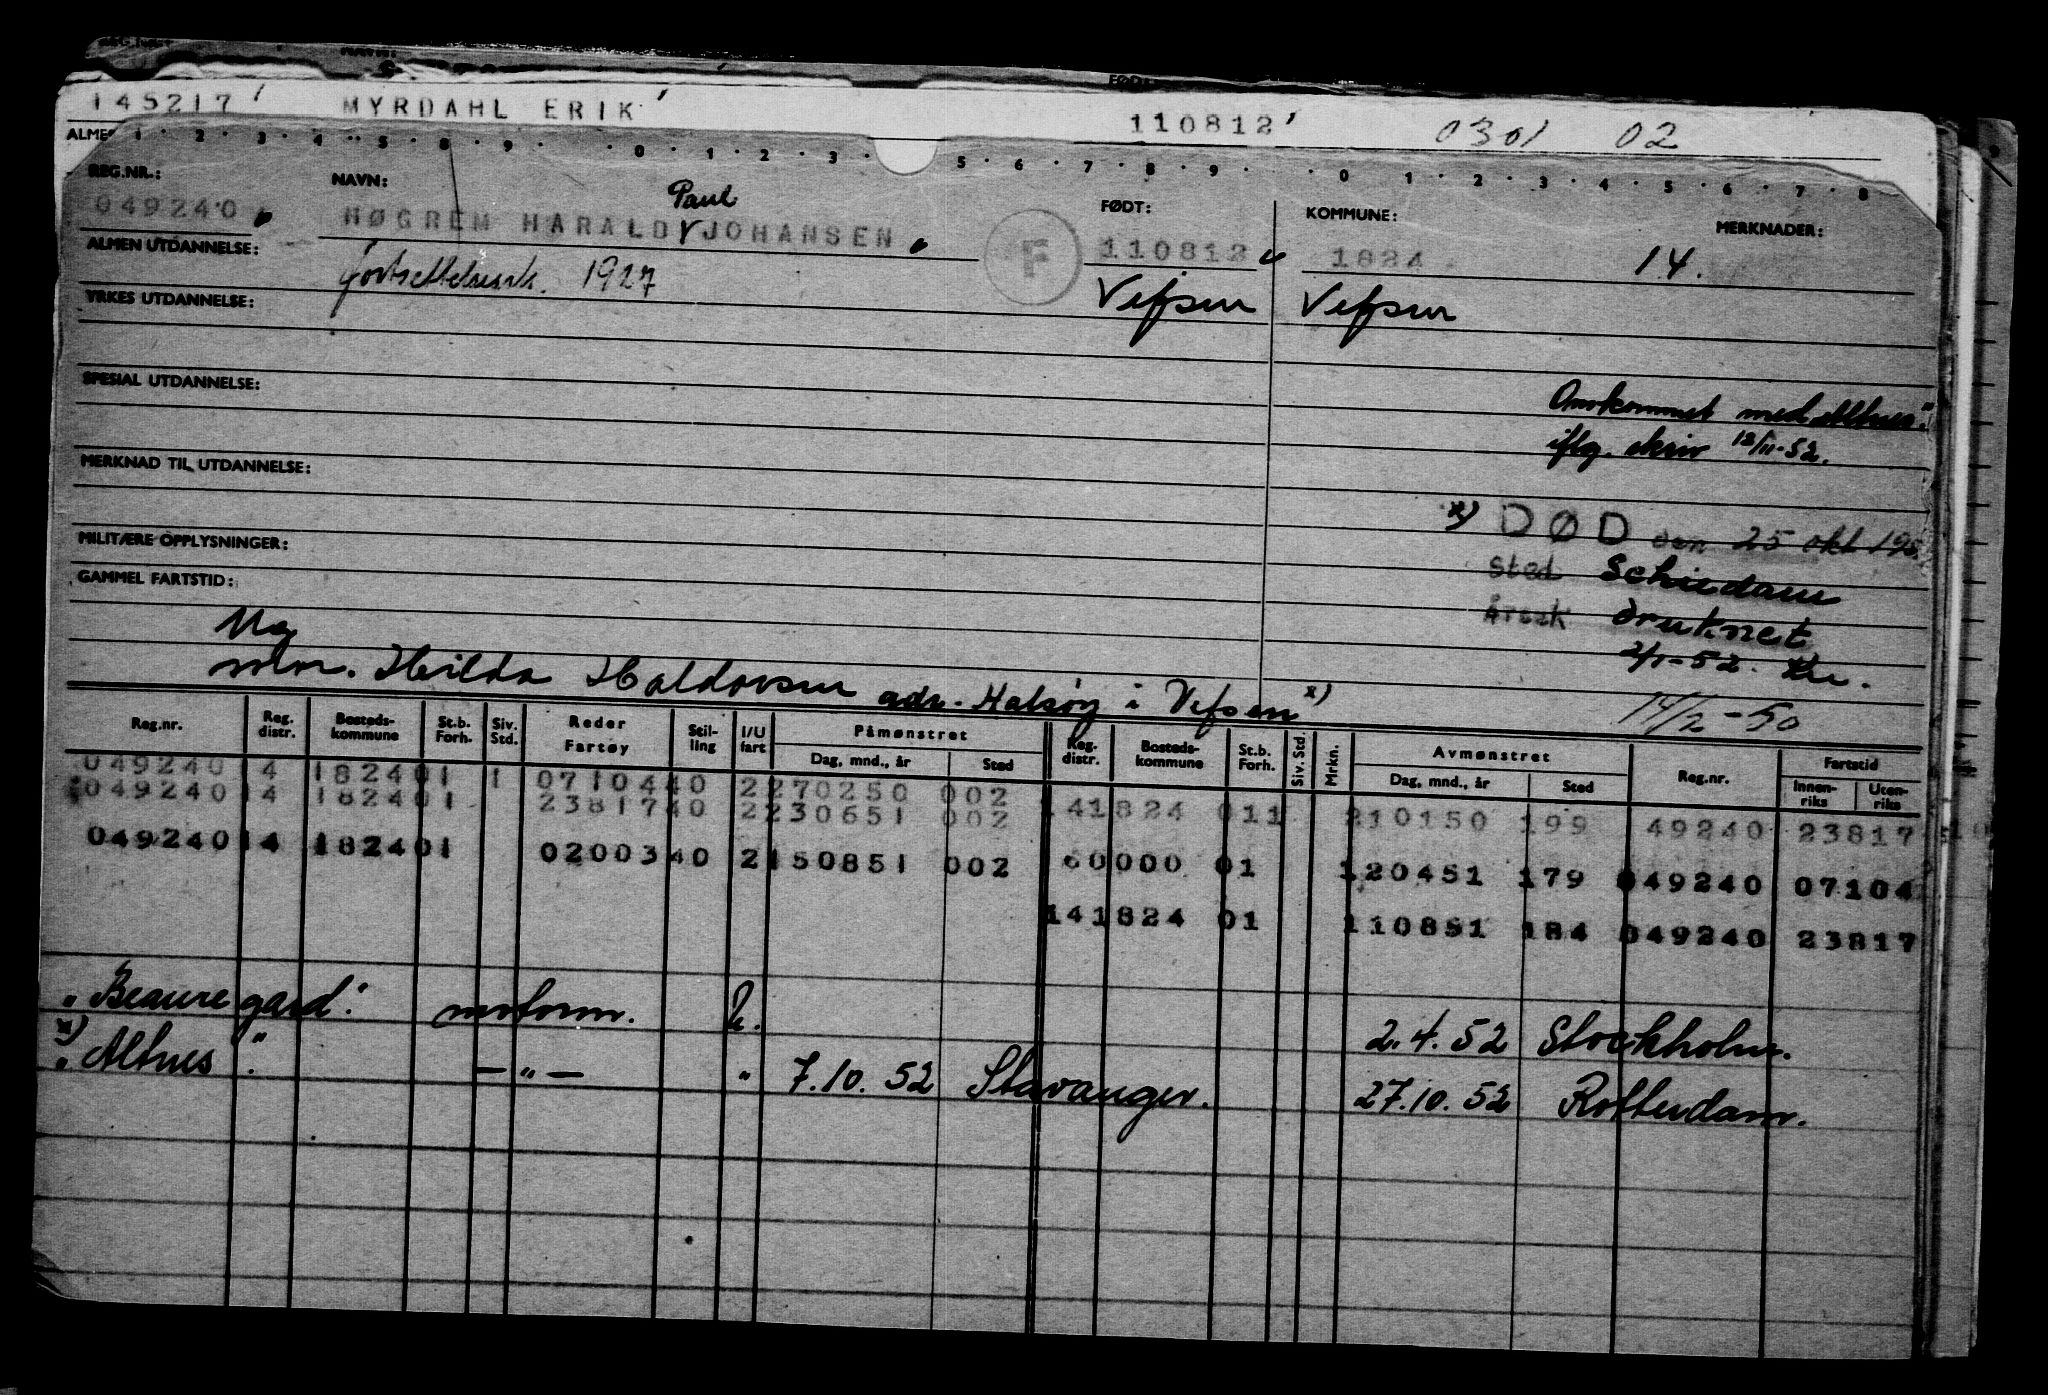 145217 MYRDAHL ERIK 110812 0301 02
ALMEN
1 · 2 · 3 · 4 · 5 · 8 · 9 · 0 · 1 · 2 · 3 · 5 · 6 · 7 · 8 · 9 · 0 · 1 · 2 · 3 · 4 · 5 · 6 · 7 · 8
REG.NR.: NAVN: FØDT: KOMMUNE: MERKNADER:
Paul
049240 HØGREM HARALD JOHANSEN F 110812 1824 14.
ALMEN UTDANNELSE: 1927 Vefsen Vefsen
YRKES UTDANNELSE:
SPESIAL UTDANNELSE:
Omkommet med "Altnes".
iflg. skriv 12/11-52.
MERKNAD TIL UTDANNELSE:
x) DØD den 25 okt 195
MILITÆRE OPPLYSNINGER:
Sted Schiedam
GAMMEL FARTSTID:
Årsak druknet
mor. Hilda Haldorsen adr. Halsøy i Vefsen x)
14/2-50
Reg.nr. Reg. distr. Bosteds-kommune St.b. Forh. Siv. Std. Reder Fartøy Stil-ling I/U fart Påmønstret Dag, mnd., år Sted Reg. distr. Bosteds-kommune St.b. Forh. Siv. Std. Mrkn. Avmønstret Dag, mnd., år Sted Reg.nr. Fartstid Innen-riks Uten-riks
049240 14 182401 1 0710440 2 270250 002
049240 14 182401 2381740 2 230651 002 141824 011 210150 199 49240 23817
049240 14 182401 0200340 2 150851 002 60000 01 120451 179 049240 07104
141824 01 110851 184 049240 23817
"Beauregard". 2.4.52 Stockholm.
x) "Altnes". — " — " 7.10.52 Stavanger. 27.10.52 Rotterdam.